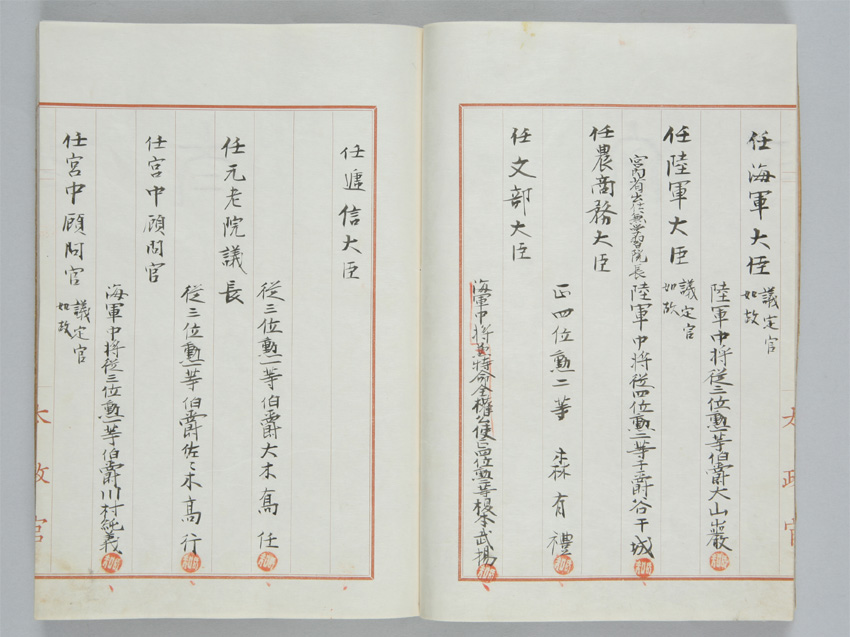 任海軍大臣 議定官如故
陸軍中将従三位勲一等伯爵大山巌
任陸軍大臣 議定官如故
宮内省出仕兼学習院長陸軍中将従四位勲二等子爵谷干城
任農商務大臣
正四位勲二等 森有禮
任文部大臣
海軍中将兼特命全権公使正四位勲二等榎本武揚
太政官
任逓信大臣
従三位勲一等伯爵大木喬任
任元老院議長
従三位勲一等伯爵佐々木高行
任宮中顧問官
海軍中将従三位勲一等伯爵川村純義
任宮中顧問官 議定官如故
太政官